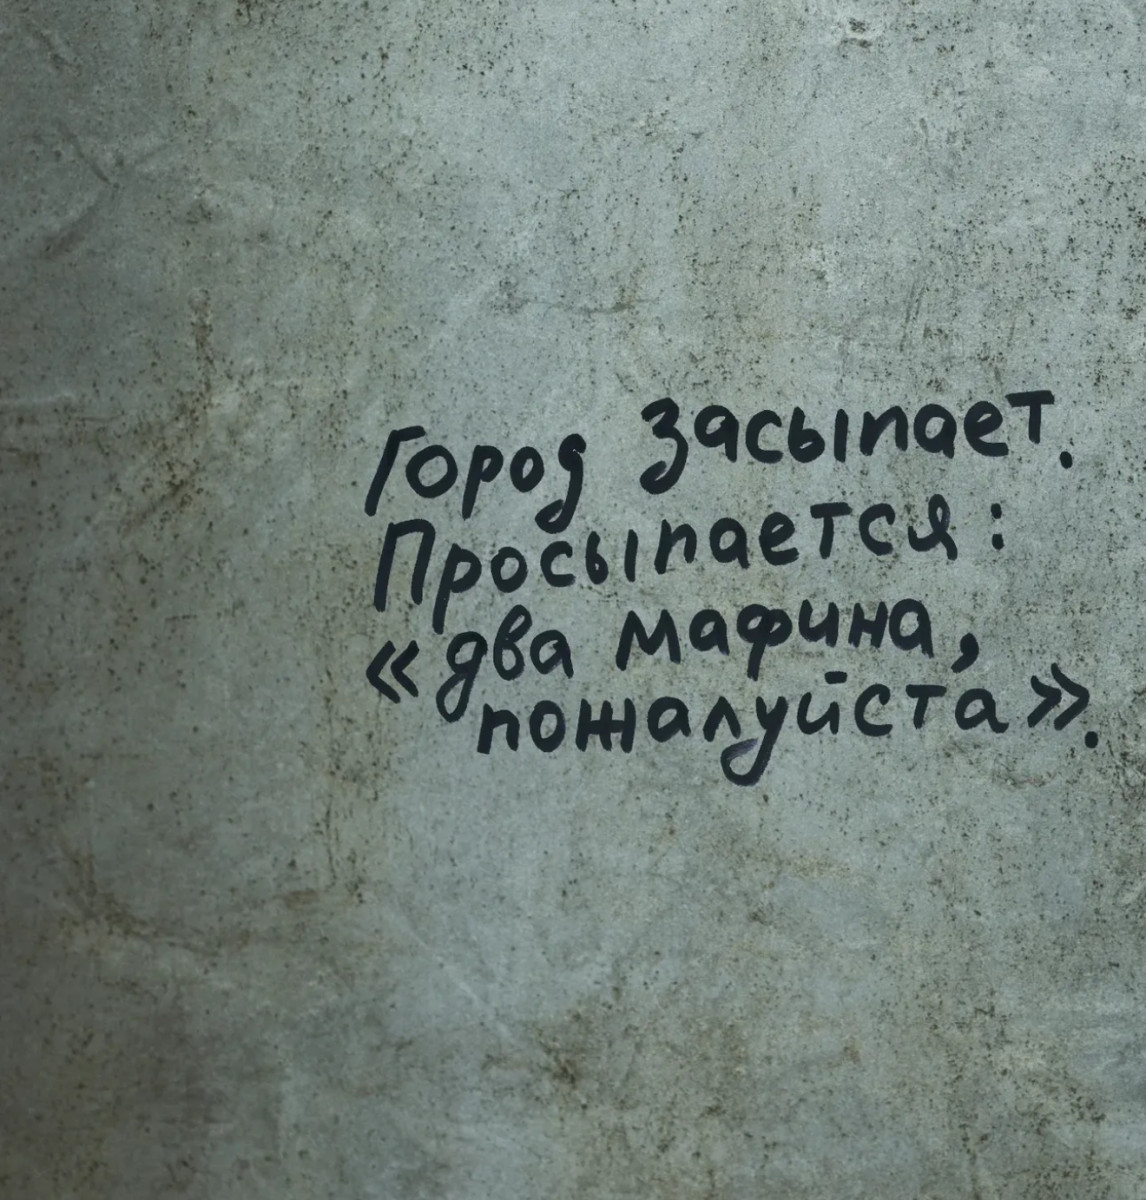 Город засыпает.
Просыпается:
«два мафина,
пожалуйста».